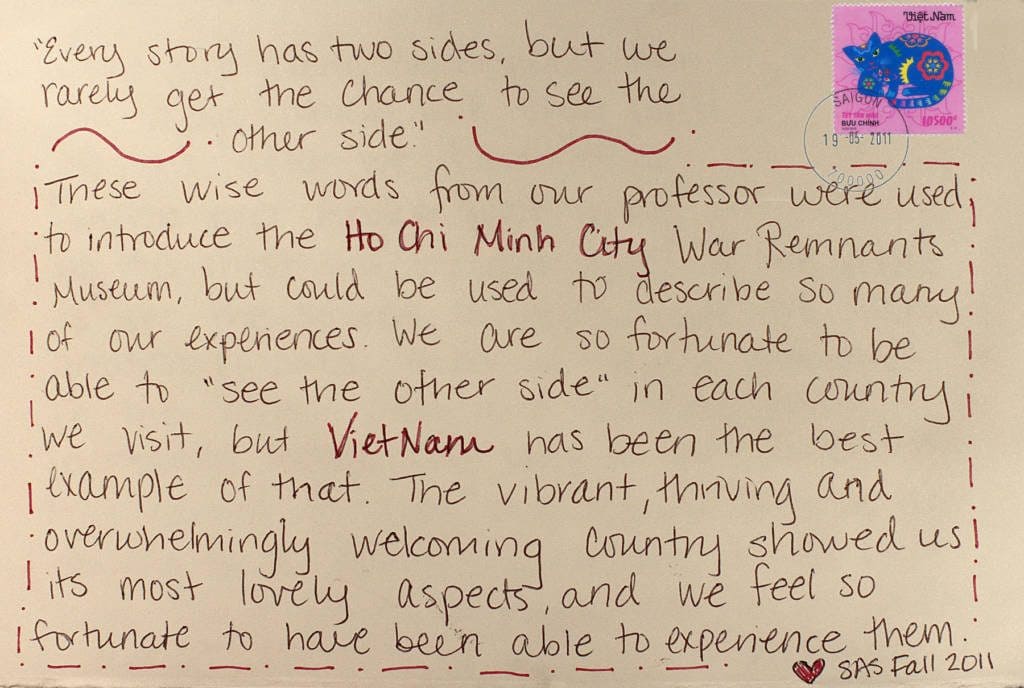 "Every story has two sides, but we
rarely get the chance to see the
other side."
These wise words from our professor were used
to introduce the Ho Chi Minh City War Remnants
Museum, but could be used to describe so many
of our experiences. We are so fortunate to be
able to "see the other side" in each country
we visit, but VietNam has been the best
example of that. The vibrant, thriving and
overwhelmingly welcoming country showed us
its most lovely aspects, and we feel so
fortunate to have been able to experience them.
SAS Fall 2011
Việt Nam
BƯU CHÍNH
10500đ
SAIGON
19-05-2011
700000